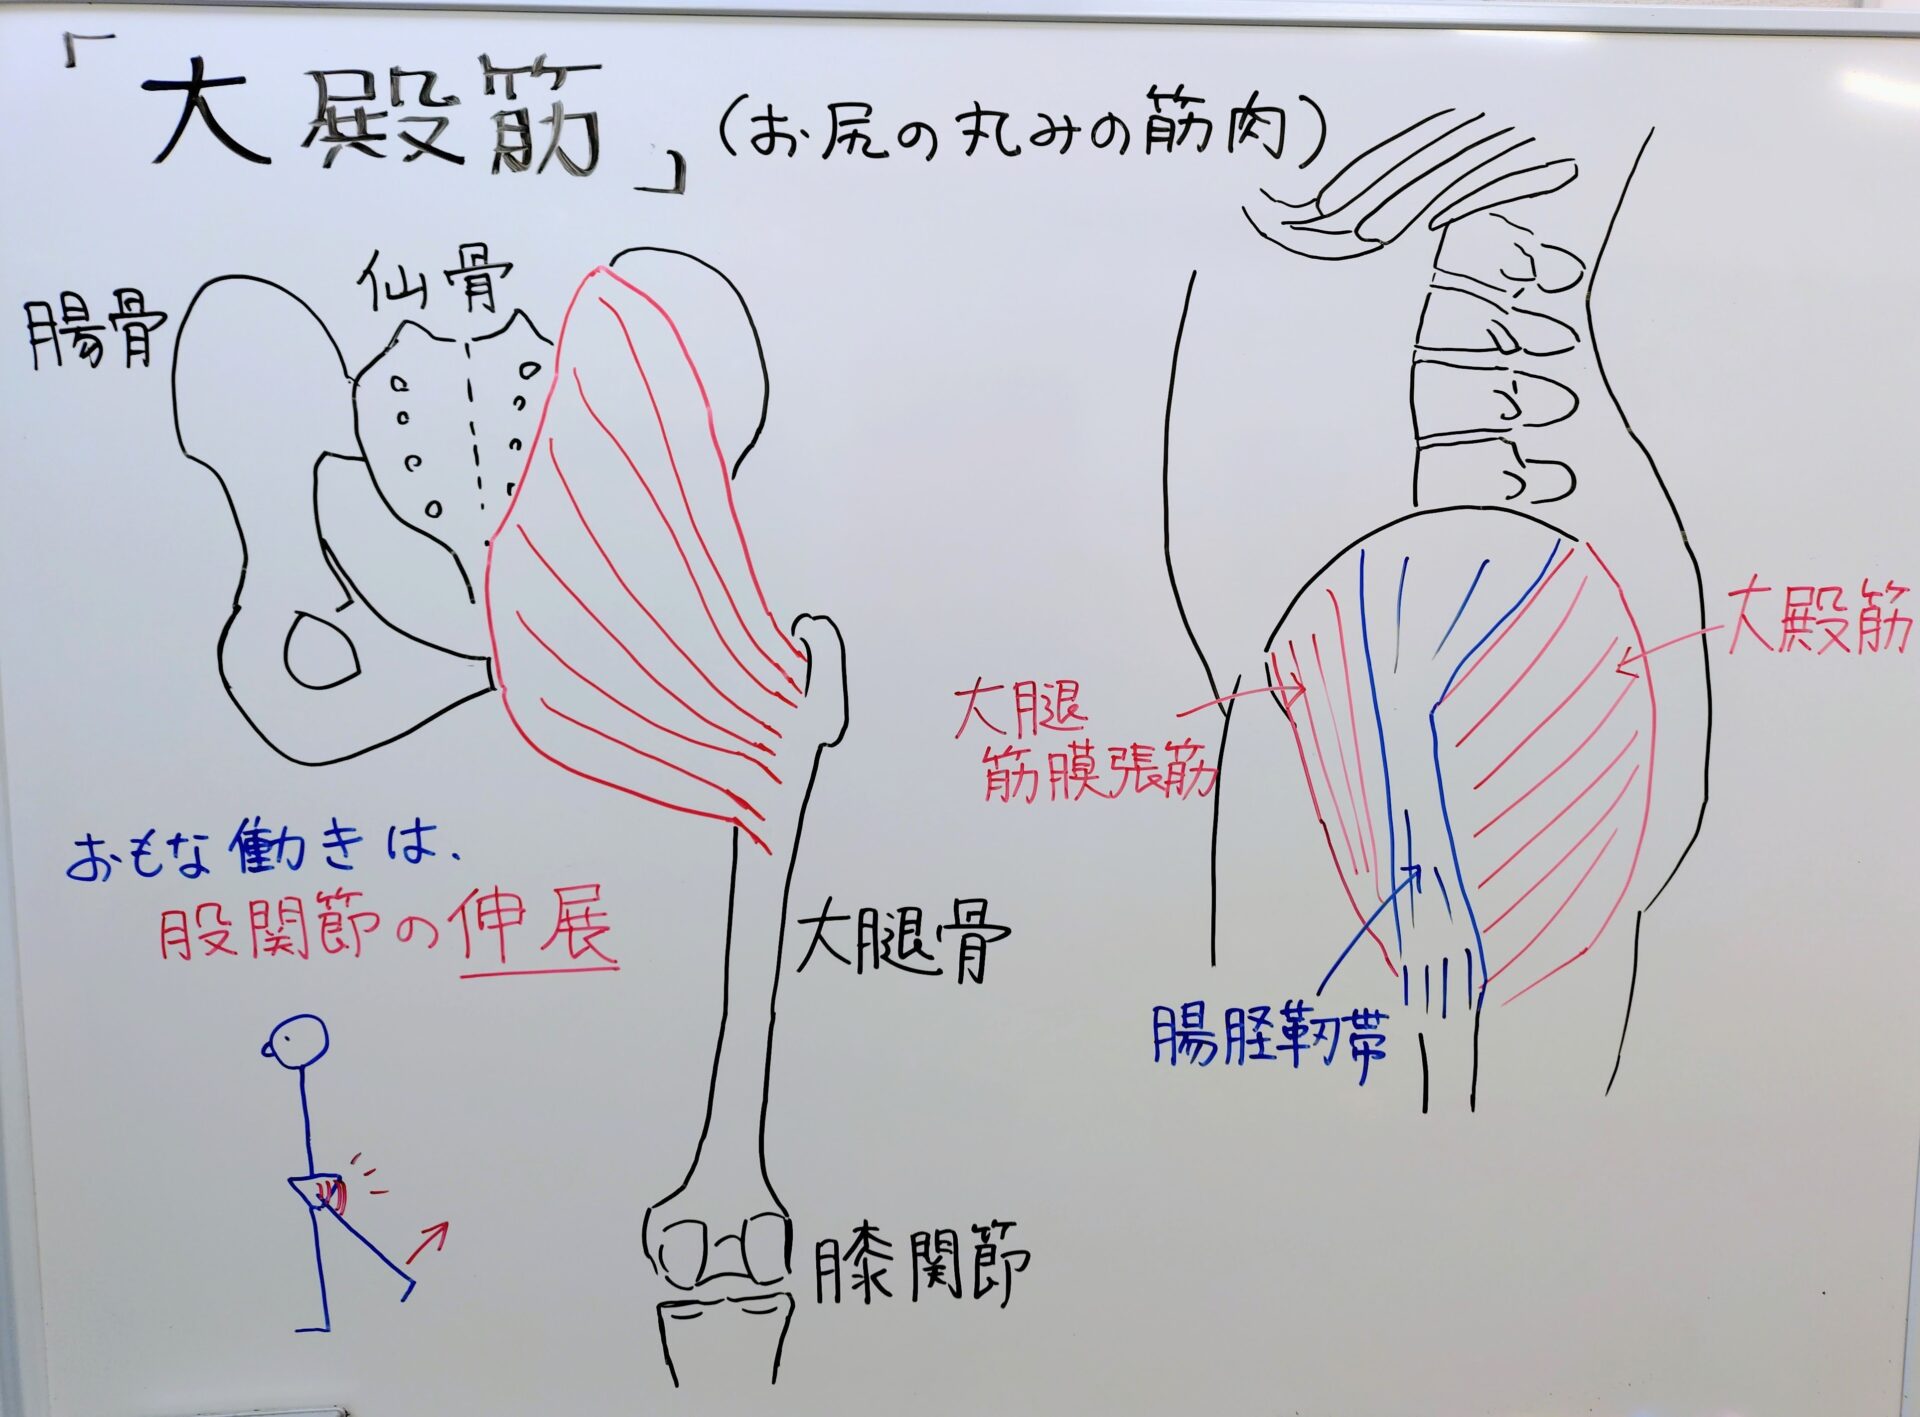 「大殿筋」(お尻の丸みの筋肉)
仙骨
腸骨
大殿筋
大腿
筋膜張筋
おもな働きは、
股関節の伸展
大腿骨
腸脛靭帯
膝関節